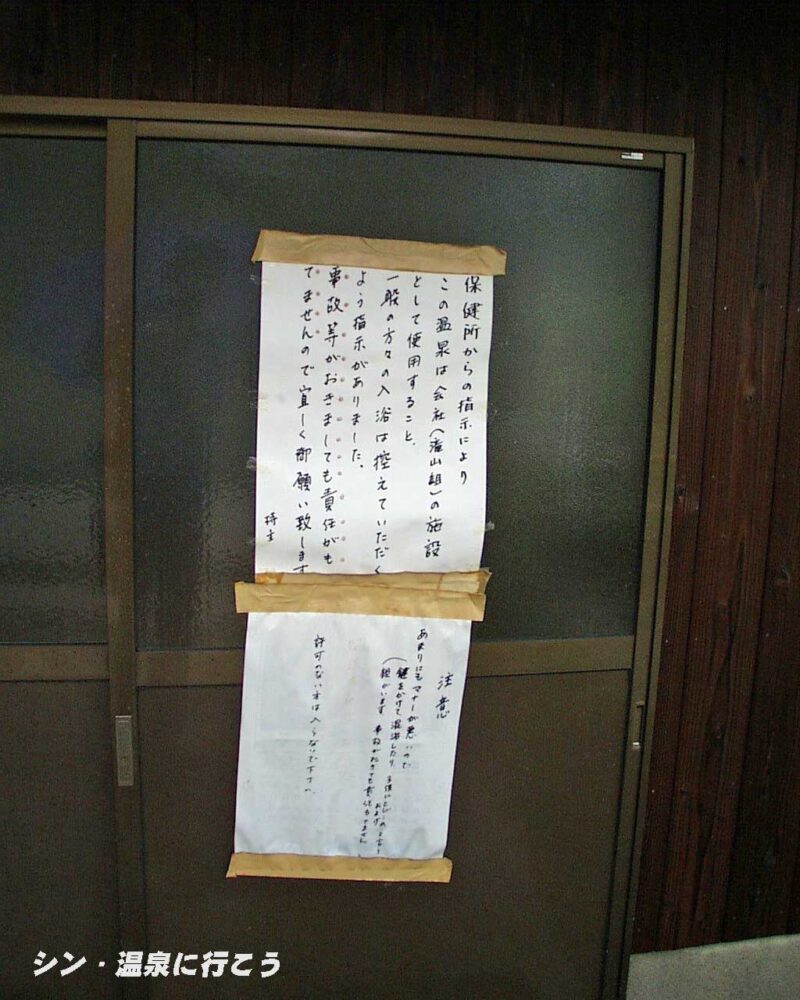 保健所からの指示により
この温泉は会社(滝山組)の施設
として使用すること、
一般の方々の入浴は控えていただく
よう指示がありました。
事故等がおきましても責任がも
てませんので宜しく御願い致します
持主
注意
あまりにもマナーが悪いので
(鍵をかけて混浴したり、子供に
組がいます 事故がおきても責任もてません
許可のない方は入らないで下さい
シン・温泉に行こう